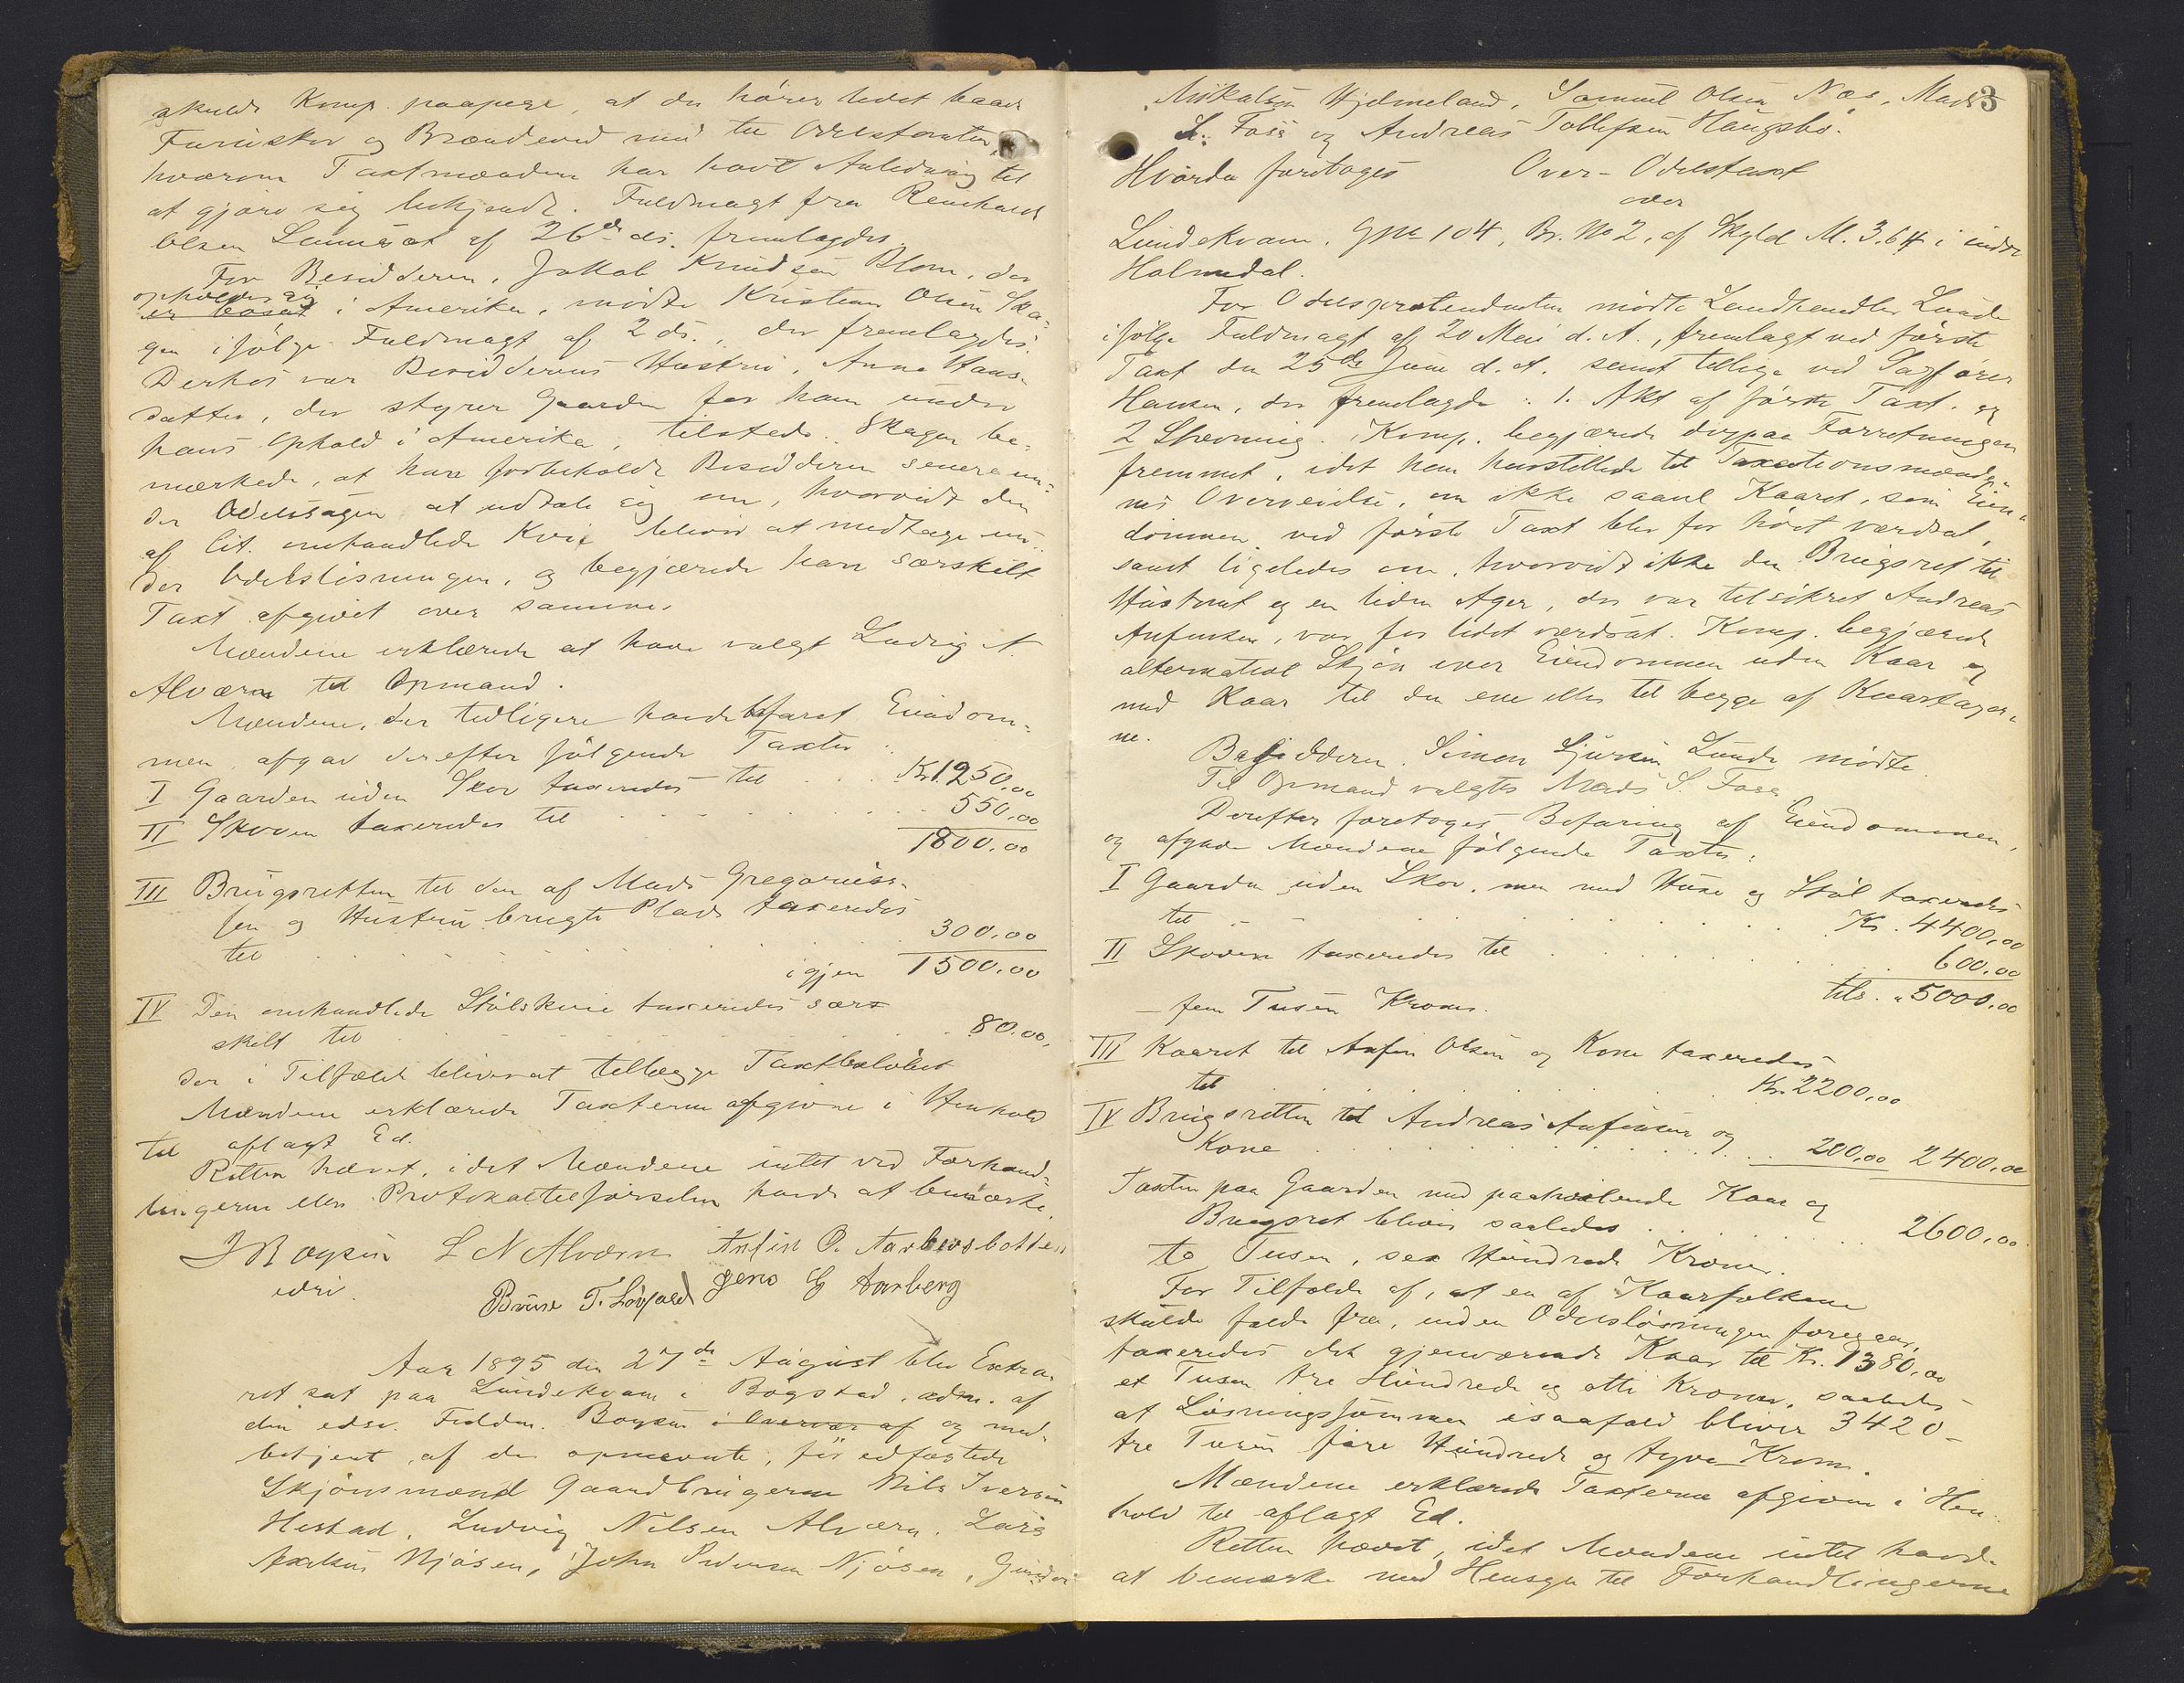 skulde Komp. paapege, at der hører hertil baade
Furuskov og Brændeved med til Odelsforretn.,
hvorom Taxtmændene har havt Anledning til
at gjøre sig bekjendt. Fuldmagt fra Reinhard
Olsen af 26de ds. fremlagdes.
For Besidderen, Jakob Knudsen Blom, der
opholder sig
er bosat i Amerika, mødte Kristian Olsen Ska-
gen ifølge Fuldmagt af 2 ds., der fremlagdes.
Derhos var Besidderens Hustru, Anna Hans-
datter, der styrer Gaarden for ham under
hans Ophold i Amerika, tilstede. Skagen be-
mærkede, at han forbeholdt Besidderen senere un-
der Odelssagen at udtale sig om, hvorvidt den
af Cit. omhandlede Kvie bliver at medtage un-
der Odelsløsningen, og begjærede han særskilt
Taxt afgivet over samme.
Mændene erklærede at have valgt Ludvig N.
Alværn til Opmand.
Mændene, der tidligere havde befaret Eiendom-
men, afgav derefter følgende Taxter:
I Gaarden uden Skov taxeredes til . . . Kr. 1250,00
II Skoven taxeredes til . . . . . . 550,00
1800,00
III Brugsretten til den af Mads Gregorius-
sen og Hustru brugte Plads taxeredes
til . . . . . . 300,00
igjen 1500,00
IV Den omhandlede Stølskvie taxeredes sær-
skilt til . . . . . . 80,00,
der i Tilfælde bliver at tillægge Taxtbeløbet
Mændene erklærede Taxterne afgivne i Henhold
til aflagt Ed.
Retten hævet, idet Mændene intet ved Forhand-
lingerne eller Protokoltilførselen havde at bemærke.
J Boysen L N Alværn Anfin O. Aarbersbotten
edsv. Brune T. Løvfald Jens G Aarberg
Aar 1895 den 27de August blev Extra-
ret sat paa Lundekvam i Bogstad, adm. af
den edsv. Fuldm. Boysen i Overvær af og med-
betjent af de opnævnte, før edfæstede
Skjønsmænd Gaardbrugerne Nils Iversen
Hestad, Ludvig Nilsen Alværn, Lars
Axelsen Njøsen, John Pedersen Njøsen, Gunder
3
Mikalsen Hjelmeland, Samuel Olsen Næs, Mads
S. Foss og Andreas Tollefsen Haugsbø.
Hvorda foretoges Over-Odelstaxt
over
Lundekvam, G No 104, Br. No 2, af Skyld M. 3.64 i indre
Holmedal.
For Odelsprætendenten mødte Landhandler Lunde
ifølge Fuldmagt af 20 Mai d. A., fremlagt ved første
Taxt den 25de Juni d. A. samt tillige ved Sagfører
Hansen, der fremlagde: 1. Akt af første Taxt. og
2 Stævning. Komp. begjærede derpaa Forretningen
fremmet, idet han henstillede til Taxationsmænde-
nes Overveielse, om ikke saavel Kaaret, som Eien-
dommen ved første Taxt blev for høit værdsat,
samt ligeledes om, hvorvidt ikke den Brugsret til
Hustomt og en liden Ager, der var tilsikret Andreas
Anfinsen, var for lidet værdsat. Komp. begjærede
alternativt Skjøn over Eiendommen uden Kaar og
med Kaar til den ene eller til begge af Kaartager-
ne.
Besidderen Simon Sjursen Lunde mødte.
Til Opmand valgtes Mads S. Foss.
Derefter foretoges Befaring af Eiendommen,
og afgave Mændene følgende Taxter:
I Gaarden uden Skov, men med Huse og Støl taxeredes
til . . . . . . Kr. 4400,00
II Skoven taxeredes til . . . . . . 600,00
tils. " 5000,00
— fem Tusen Kroner.
III Kaaret til Anfin Olsen og Kone taxeredes
til . . . . . . Kr. 2200,00
IV Brugsretten til Andreas Anfinsen og
Kone . . . . . . 200,00 2400,00
Taxten paa Gaarden med paahvilende Kaar og
Brugsret bliver saaledes . . . . . . 2600,00
to Tusen, sex Hundrede Kroner.
For Tilfælde af, at en af Kaarfolkene
skulde falde fra, inden Odelsløsningen foregaar,
taxeredes det gjenværende Kaar til Kr. 1380,00
et Tusen tre Hundrede og otti Kroner, saaledes
at Løsningssummen isaafald bliver 3420 —
tre Tusen fire Hundrede og tyve Kroner.
Mændene erklærede Taxterne afgivne i Hen-
hold til aflagt Ed.
Retten hævet, idet Mændene intet havde
at bemærke med Hensyn til Forhandlingerne